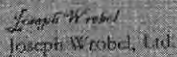 Joseph Wrobel
Joseph Wrobel, Ltd.